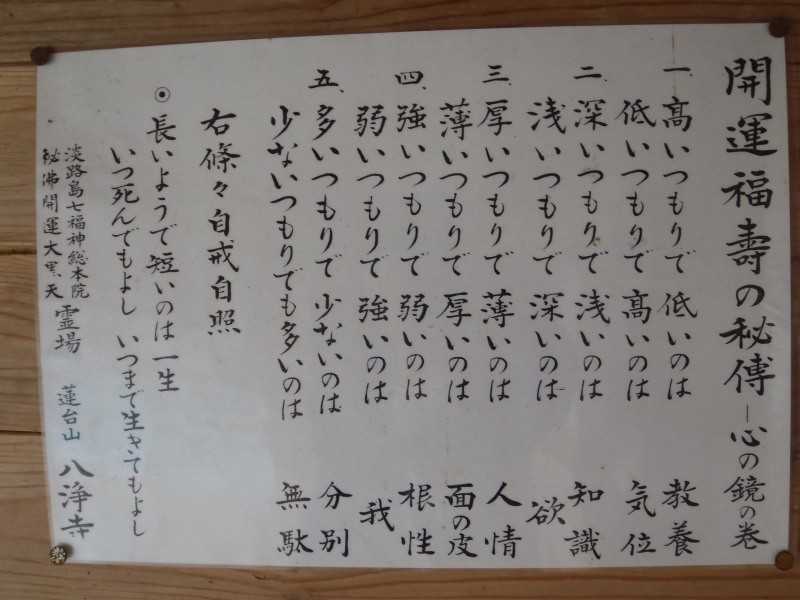 開運福壽の秘傳―心の鏡の巻
一、高いつもりで 低いのは 教養
低いつもりで 高いのは 気位
二、深いつもりで 浅いのは 知識
浅いつもりで 深いのは 欲
三、厚いつもりで 薄いのは 人情
薄いつもりで 厚いのは 面の皮
四、強いつもりで 弱いのは 根性
弱いつもりで 強いのは 我
五、多いつもりで 少ないのは 分別
少ないつもりでも多いのは 無駄
右條々自戒自照
◉ 長いようで短いのは一生
いつ死んでもよし いつまで生きてもよし
淡路島七福神総本院
秘佛開運大黒天
霊場 蓮台山 八浄寺